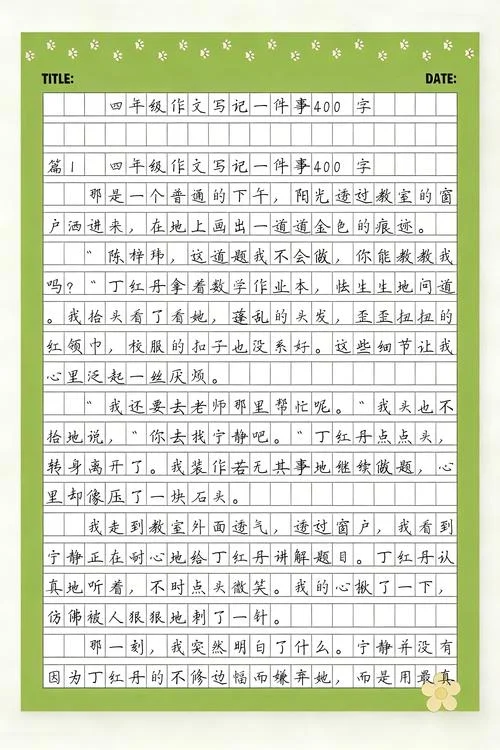 TITLE: DATE:
四年级作文写记一件事400 字
篇1 四年级作文写记一件事400 字
那是一个普通的下午，阳光透过教室的窗
户洒进来，在地上画出一道道金色的痕迹。
"陈梓玮，这道题我不会做，你能教教我
吗？"丁红丹拿着数学作业本，怯生生地问道
。我抬头看了看她，蓬乱的头发，歪歪扭扭的
红领巾，校服的扣子也没系好。这些细节让我
心里泛起一丝厌烦。
"我还要去老师那里帮忙呢。"我头也不
抬地说，"你去找宁静吧。"丁红丹点点头，
转身离开了。我装作若无其事地继续做题，心
里却像压了一块石头。
我走到教室外面透气，透过窗户，我看到
宁静正在耐心地给丁红丹讲解题目。丁红丹认
真地听着，不时点头微笑。我的心揪了一下，
仿佛被人狠狠地刺了一针。
那一刻，我突然明白了什么。宁静并没有
因为丁红丹的不修边幅而嫌弃她，而是用最真